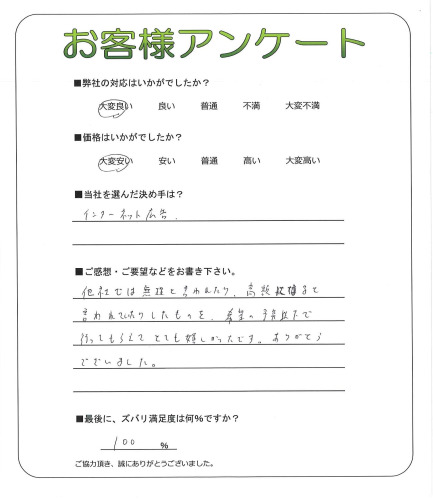 お客様アンケート
■弊社の対応はいかがでしたか？
大変良い 良い 普通 不満 大変不満
■価格はいかがでしたか？
大変安い 安い 普通 高い 大変高い
■当社を選んだ決め手は？
インターネット広告.
■ご感想・ご要望などをお書き下さい。
他社では無理と言われたり、高額
言われていたりしたものを、希望の
行ってもらえてとても嬉しかったです。ありがとう
ございました。
■最後に、ズバリ満足度は何%ですか？
100 %
ご協力頂き、誠にありがとうございました。